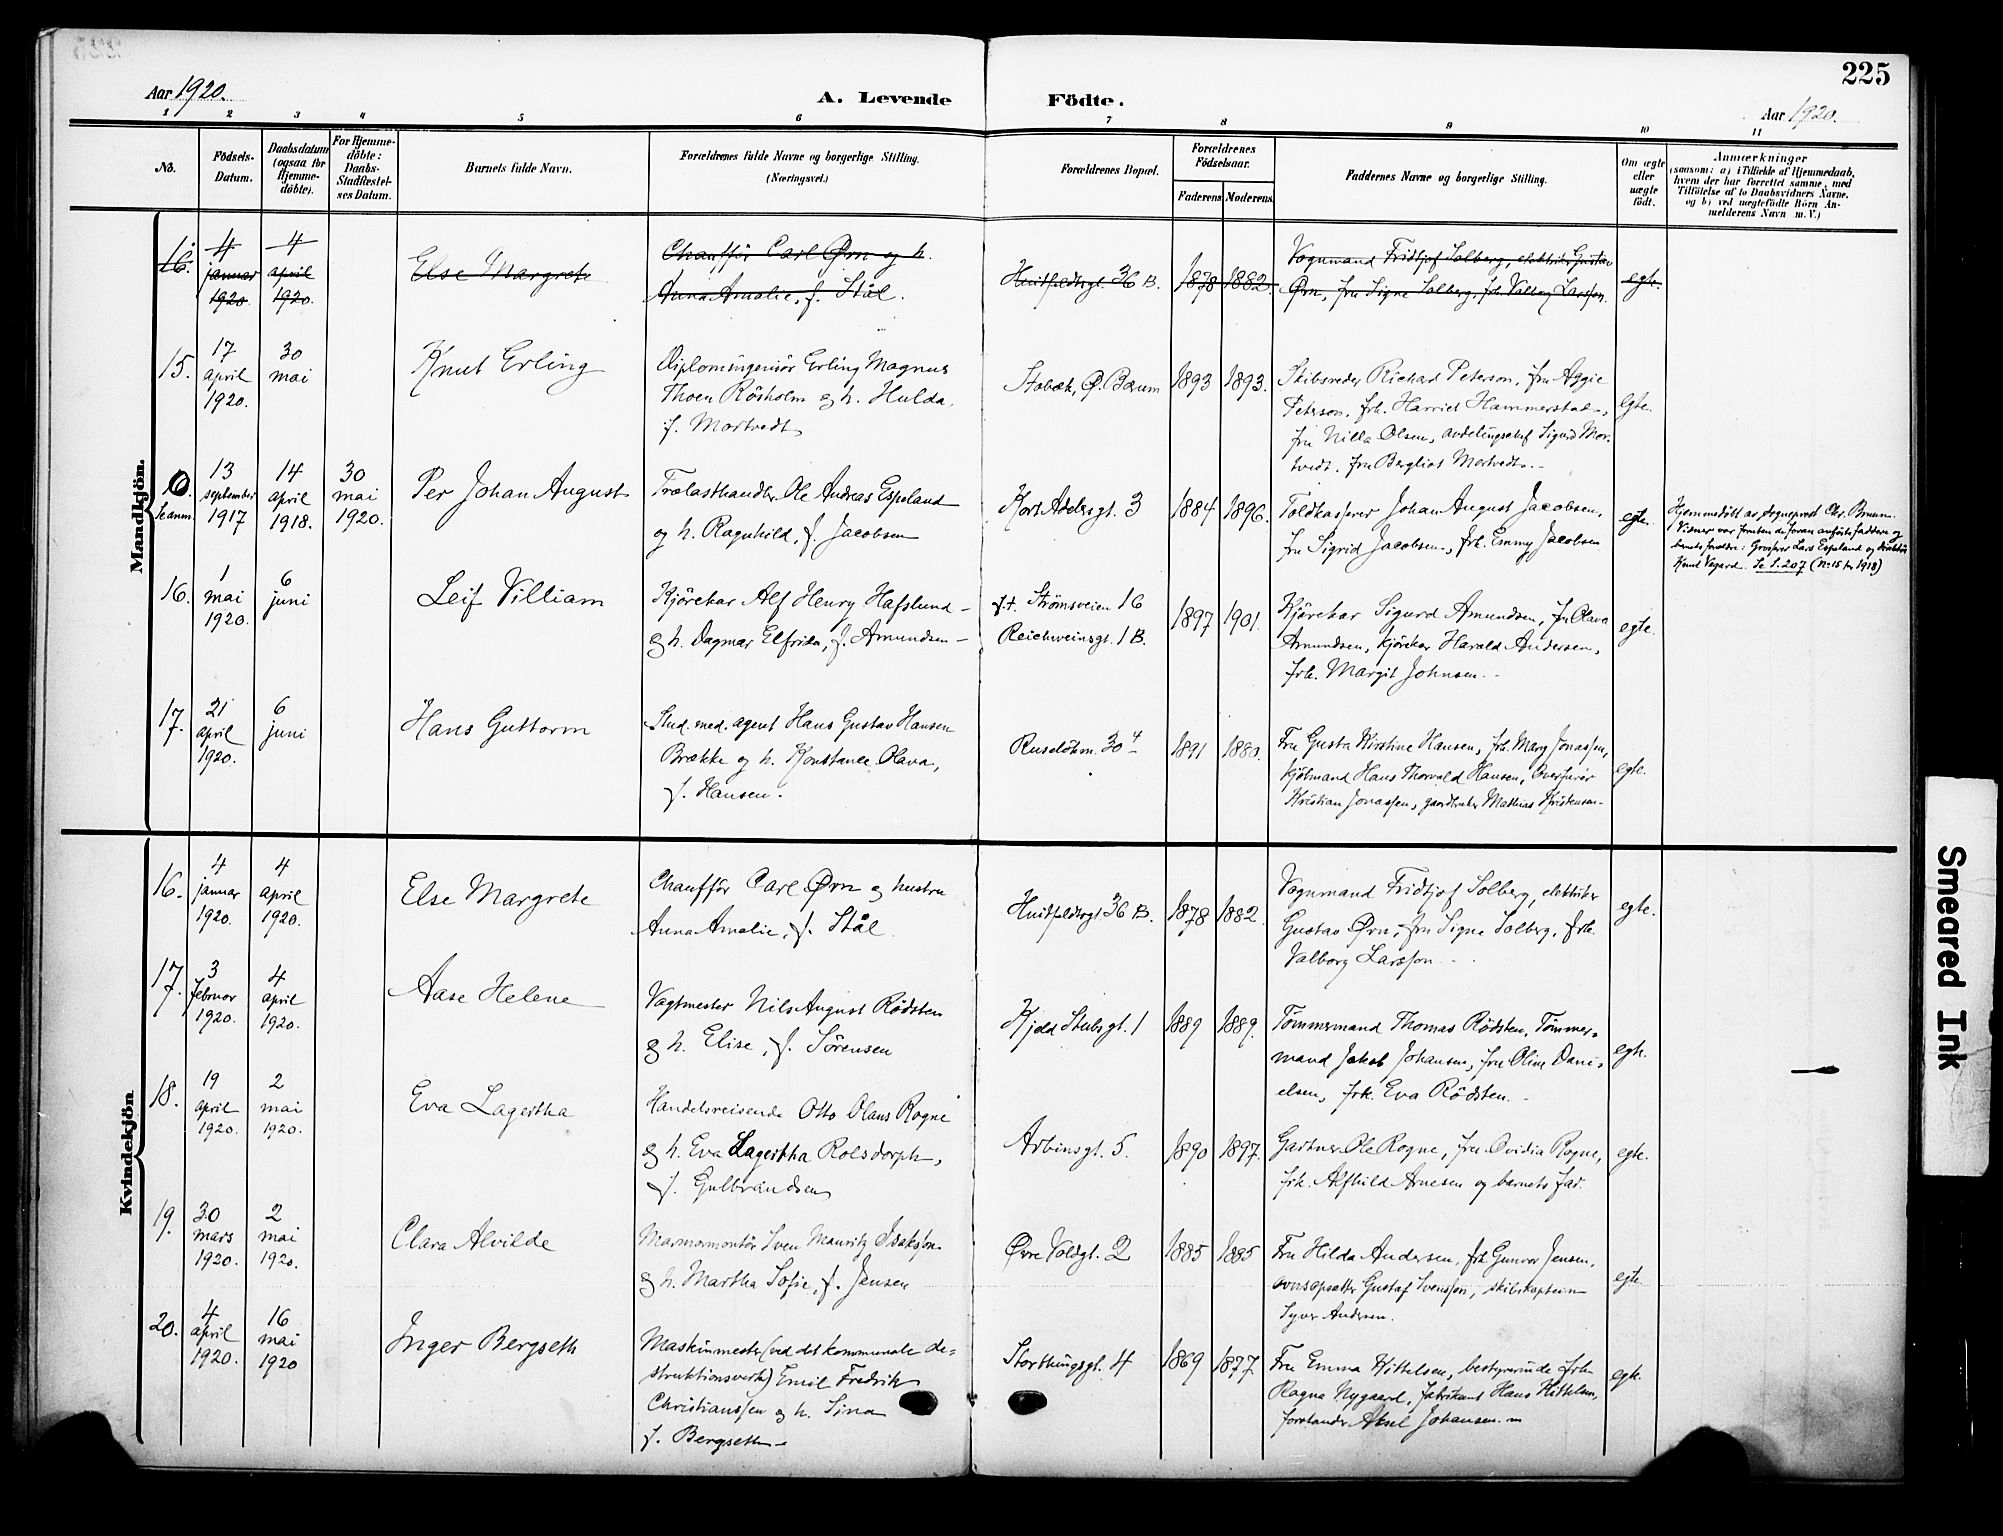 225
Aar 1920.
A. Levende Födte.
Aar 1920.
1 2 3 4 5 6 7 8 9 10 11
No.
Födsels-Datum.
Daabsdatum (ogsaa for Hjemme-döbte).
For Hjemme-döbte: Daabs-Stadfæstel-ses Datum.
Barnets fulde Navn.
Forældrenes fulde Navne og borgerlige Stilling.
(Næringsvei.)
Forældrenes Bopæl.
Forældrenes Födselsaar.
Faderens Moderens
Faddernes Navne og borgerlige Stilling.
Om ægte eller uægte födt.
Anmærkninger
(saasom: a) i Tilfælde af Hjemmedaab,
hvem der har forrettet samme, med
Tilföielse af to Daabsvidners Navne.
og b) ved uægtefödte Börn An-
melderens Navn m. V.)
Mandkjön.
16. 4 januar 1920. 4 april 1920. Else Margrete
Chaufför Carl Ørn og h.
Anna Amalie, f. Stål.
Huitfeldtsgt. 36 B. 1878 1882.
Vognmand Fridtjof Solberg, elektriker Gustav
Ørn, fru Signe Solberg, frk. Valborg Larsson.
egte.
15. 17 april 1920. 30 mai Knut Erling
Diplomingeniör Erling Magnus
Thoen Rösholm og h. Hulda,
f. Mortvedt
Stabæk, Ø. Bærum 1893 1893.
Skibsreder Richard Peterson, fru Aggie
Peterson, frk. Harriet Hammerstad,
fru Nilla Olsen, avdelingschef Sigurd Mor-
tvedt, fru Bergliot Mortvedt.
egte.
Se anm. 13 september 1917 14 april 1918. 30 mai 1920. Per Johan August
Trælasthandler Ole Andreas Espeland
og h. Ragnhild, f. Jacobsen
Kort Adelersgt. 3 1884 1896.
Toldkasserer Johan August Jacobsen,
fru Sigrid Jacobsen, frk. Emmy Jacobsen
egte.
Hjemmedöbt av sogneprest Chr. Bruun.
Vidner var foruten de foran anförte faddere og
barnets forældre: Grosserer Lars Espeland og direktör
Knut Vegard. Se S. 207 (No 15 for 1918)
16. 1 mai 1920. 6 juni Leif Villiam
Kjörekar Alf Henry Hafslund
og h. Dagmar Elfrida, f. Amundsen
f.t. Strömsveien 16
Reichweinsgt. 1 B. 1897 1901.
Kjörekar Sigurd Amundsen, fru Olava
Amundsen, kjörekar Harald Andersen,
frk. Margit Johnsen.
egte.
17. 21 april 1920. 6 juni Hans Guttorm
Stud. med. agent Hans Gustav Hansen
Brække og h. Konstance Olava,
f. Hansen.
Ruselökvn. 30 4 1891 1880.
Fru Gusta Kirstine Hansen, frk. Mary Jonassen,
kjöbmand Hans Thorvald Hansen,
Kristian Jonassen, gaardbruker Mathias Kristensen
egte.
Kvindekjön
16. 4 januar 1920. 4 april 1920. Else Margrete
Chaufför Carl Ørn og hustru
Anna Amalie, f. Stål.
Huitfeldtsgt 36 B. 1878 1882.
Vognmand Fridtjof Solberg, elektriker
Gustav Ørn, fru Signe Solberg, frk.
Valborg Larsson
egte.
17. 3 februar 1920. 4 april 1920. Aase Helene
Vagtmester Nils August Rödsten
og h. Elise, f. Sörensen
Kjeld Stubsgt. 1 1889 1889.
Tömmermand Thomas Rödsten, Tömmer-
mand Jakob Johansen, fru Oline Dani-
elsen, frk. Eva Rödsten.
egte.
18. 19 april 1920. 2 mai 1920. Eva Lagertha
Handelsreisende Otto Olaus Rogne
og h. Eva Lagertha Rolsdorph,
f. Gulbrandsen
Arbinsgt. 5. 1890 1897.
Gartner Ole Rogne, fru Ovidia Rogne,
frk. Alfhild Arnesen og barnets far.
egte.
19. 30 mars 1920. 2 mai 1920. Clara Alvilde
Marmormontör Sven Mauritz Isaksson
og h. Martha Sofie, f. Jensen
Øvre Voldgt. 2 1885 1885
Fru Hilda Andersen, frk Gunvor Jensen,
ovnsopsetter Gustaf Svensson, skibskaptein
Syver Andersen.
egte
20. 4 april 1920. 16 mai 1920 Inger Bergseth
Maskinmester (ved det kommunale de-
struktionsverk) Emil Fredrik
Christianssen og h. Lina
f. Bergseth
Storthingsgt. 4 1869 1877.
Fru Emma Kittelsen, bestyrerinde frk
Ragna Nygaard, fabrikant Hans Kittelsen,
forstander Aksel Johansen.
egte.
Smeared Ink